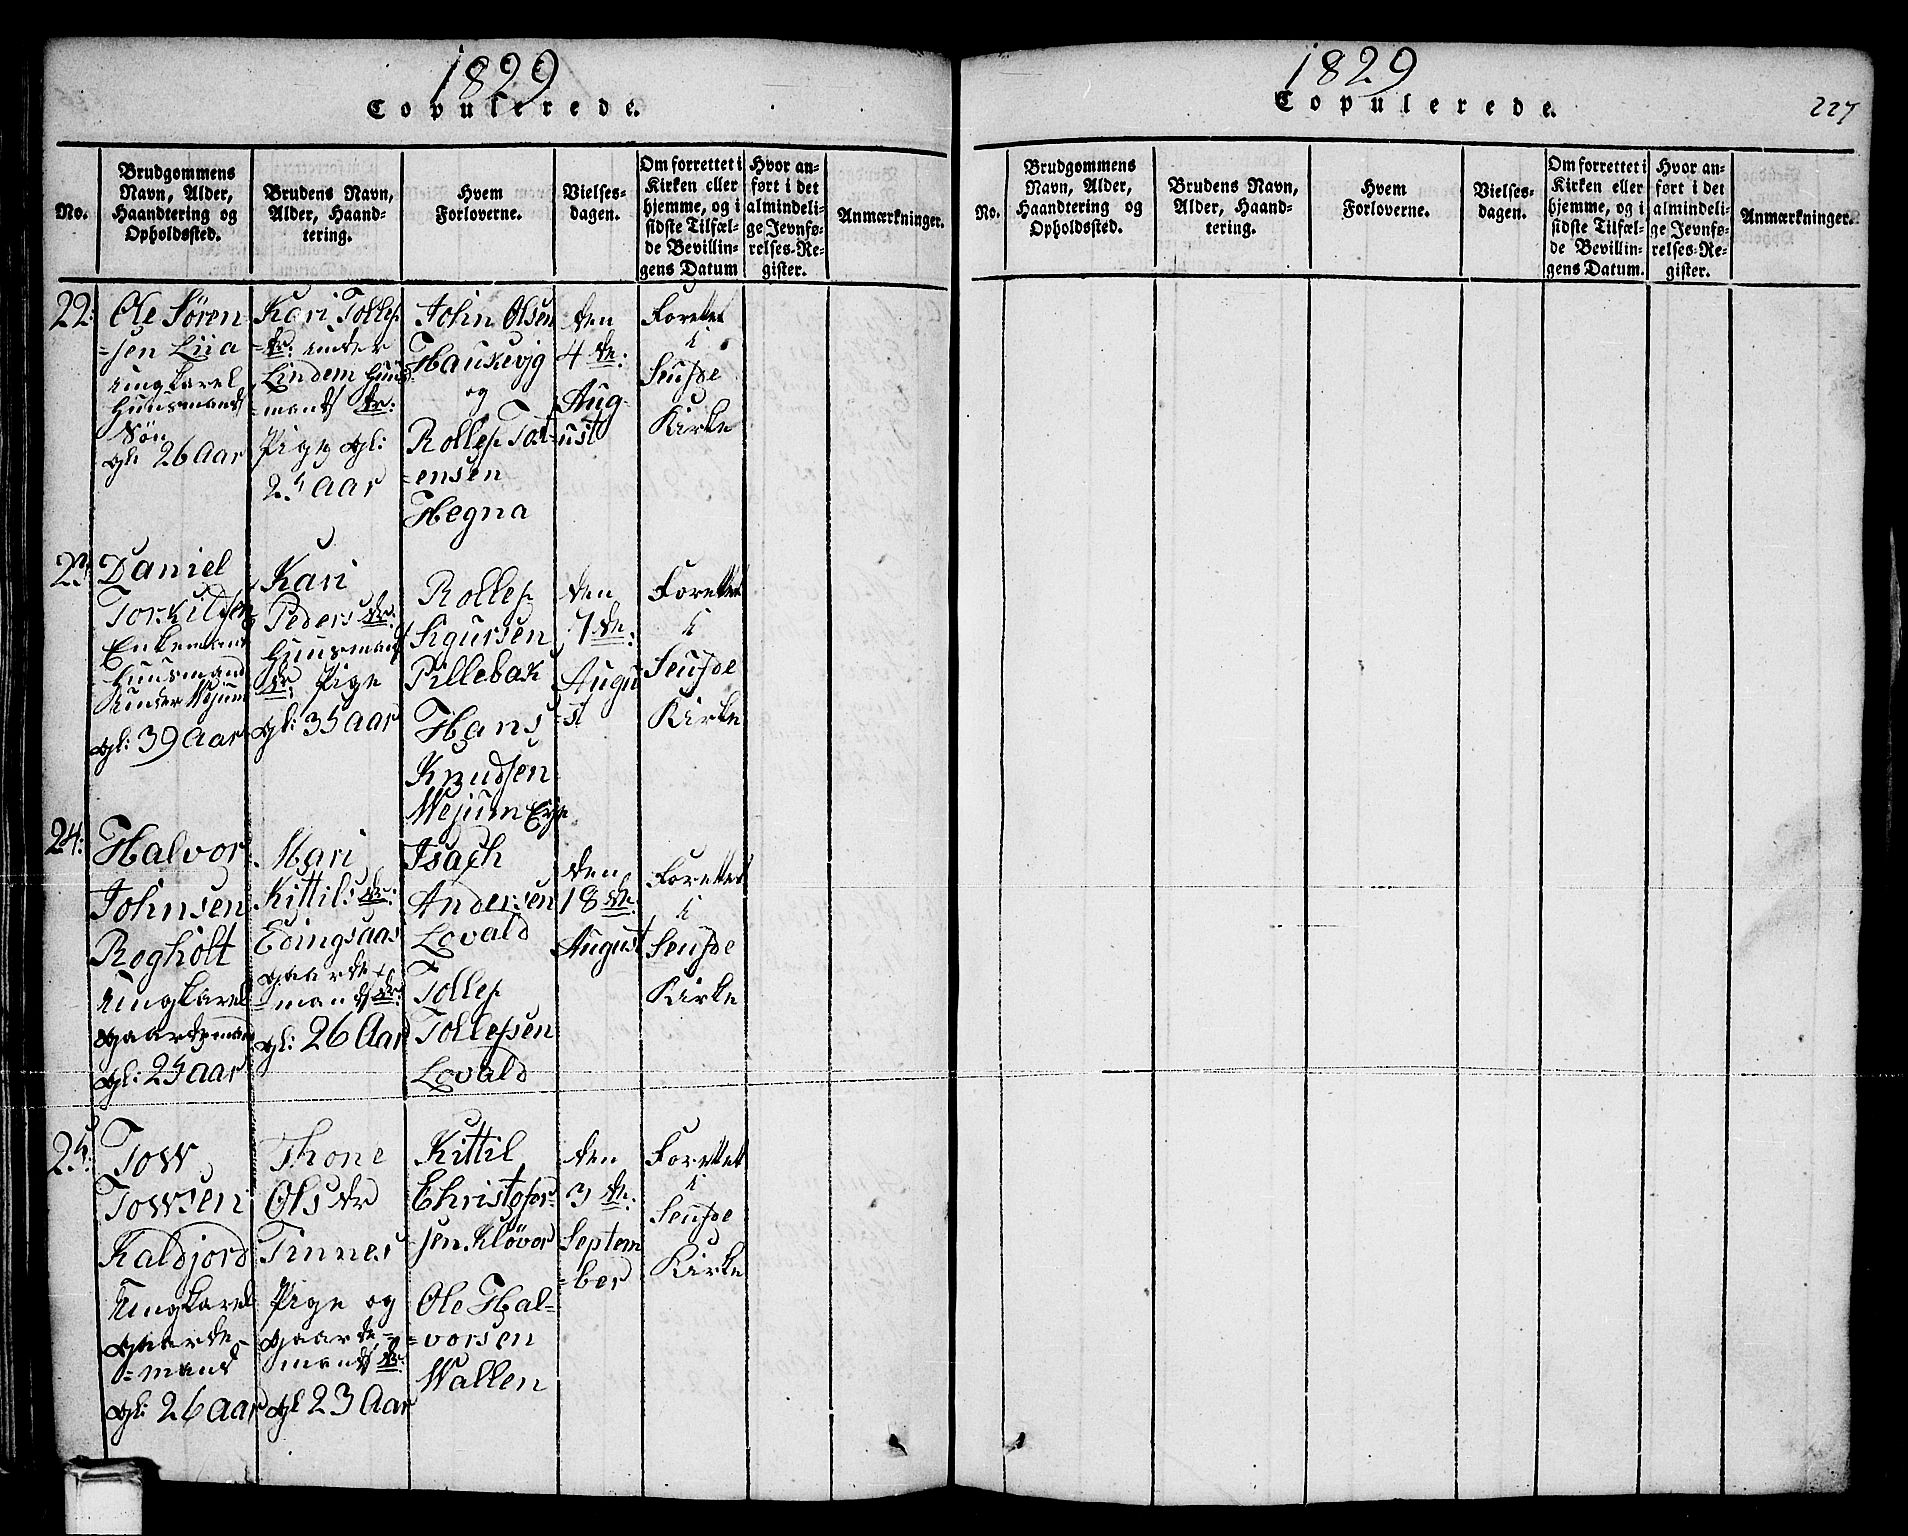 1829
Copulerede.
No.
Brudgommens
Navn, Alder,
Haandtering og
Opholdssted.
Brudens Navn,
Alder, Haand-
tering.
Hvem
Forloverne.
Vielses-
dagen.
Om forrettet i
Kirken eller
hjemme, og i
sidste Tilfæl-
de Bevillin-
gens Datum
Hvor an-
ført i det
almindeli-
ge Jevnfø-
relses-Re-
gister.
Anmærkninger.
22:
Ole Sören
=sen Liia
Ungkarel
Huusmands
Søn
gl: 26 Aar
Kari Tollef
=dr: under
Lindem Huus
=mands dr:
Pige gl:
25 Aar
John Olsen
Haukevjg
og
Rollef Tost
=ensen
Hegna
den
4 de:
Aug-
ust
Forettet
i
Seufde
Kirke
23:
Daniel
Torkildsen
Enkemand
Huusmand
under Wejum
gl: 39 Aar
Kari
Peders dr:
Huusmands
dr: Pige
gl: 35 Aar
Rollef
Sigursen
Pillebak
Hans
Knudsen
Wejum Eje
den
7 de:
Augu
=st
Forettet
i
Seufde
Kirke
24:
Halvor
Johnsen
Rogholt
Ungkarel
gaardemand
gl: 25 aar
Mari
Kittils dr:
Edingsaas
gaarde
=mands dr:
gl: 26 Aar
Isach
Andersen
Lovald
Tollef
Tollefsen
Lovald
den
18 de:
August
Forettet
i
Seufde
Kirke
25:
Tow
Towsen
Kaldjord
Ungkarel
gaarde
=mand
gl: 26 Aar
Thone
Ols dr
Tinnes
Pige og
gaarde=
mands dr:
gl 23 Aar
Kittil
Christofor
sen Kløvor
Ole Hal=
=vorsen
Wallen
den
3 de:
Septem
=ber
Forettet
i
Seufde
Kirke
1829
Copulerede.
227
No.
Brudgommens
Navn, Alder,
Haandtering og
Opholdssted.
Brudens Navn,
Alder, Haand-
tering.
Hvem
Forloverne.
Vielses-
dagen.
Om forrettet i
Kirken eller
hjemme, og i
sidste Tilfæl-
de Bevillin-
gens Datum.
Hvor an-
ført i det
almindeli-
ge Jevnfø-
relses-Re-
gister.
Anmærkninger.